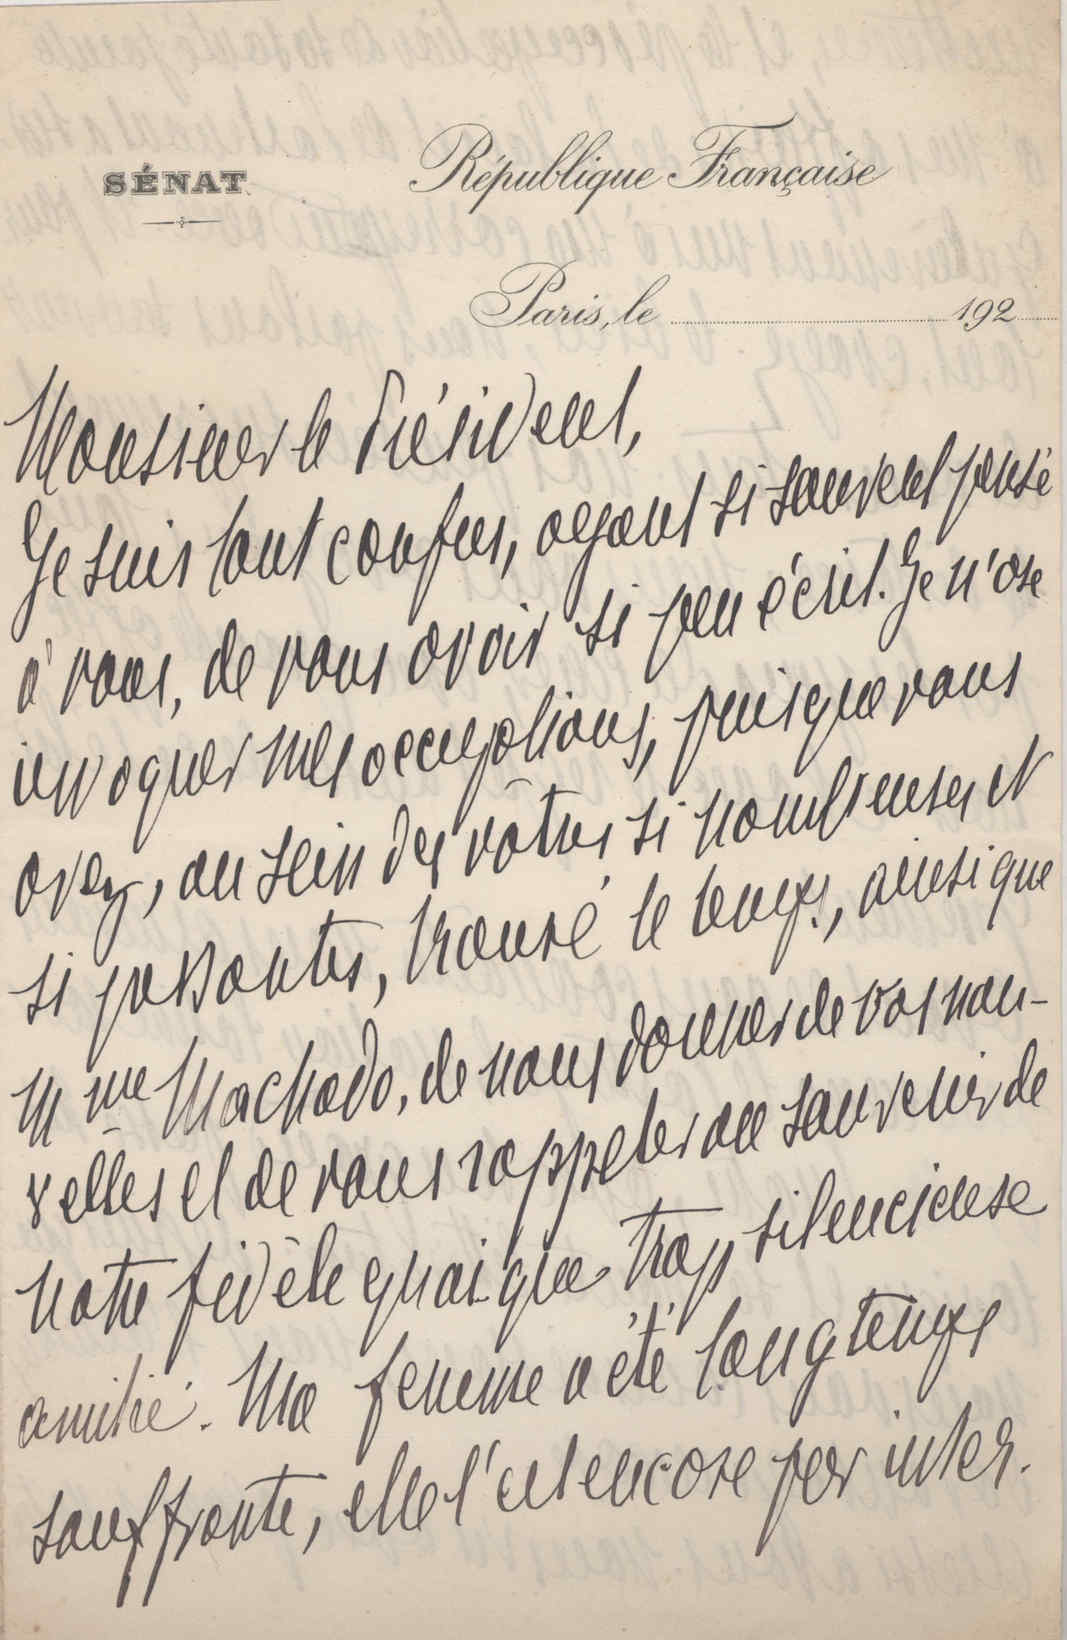 SÉNAT
République Française
Paris, le 192
Monsieur le Président,
Je suis tout confus, ayant si souvent pensé
à vous, de vous avoir si peu écrit. Je n'ose
invoquer mes occupations, puisque vous
avez, au sein des vôtres si nombreuses et
si pesantes, trouvé le temps, ainsi que
Mme Machado, de nous donner de vos nou-
velles et de vous rappeler au souvenir de
notre fidèle quoique trop silencieuse
amitié. Ma femme a été longtemps
souffrante, elle l'est encore par inter-